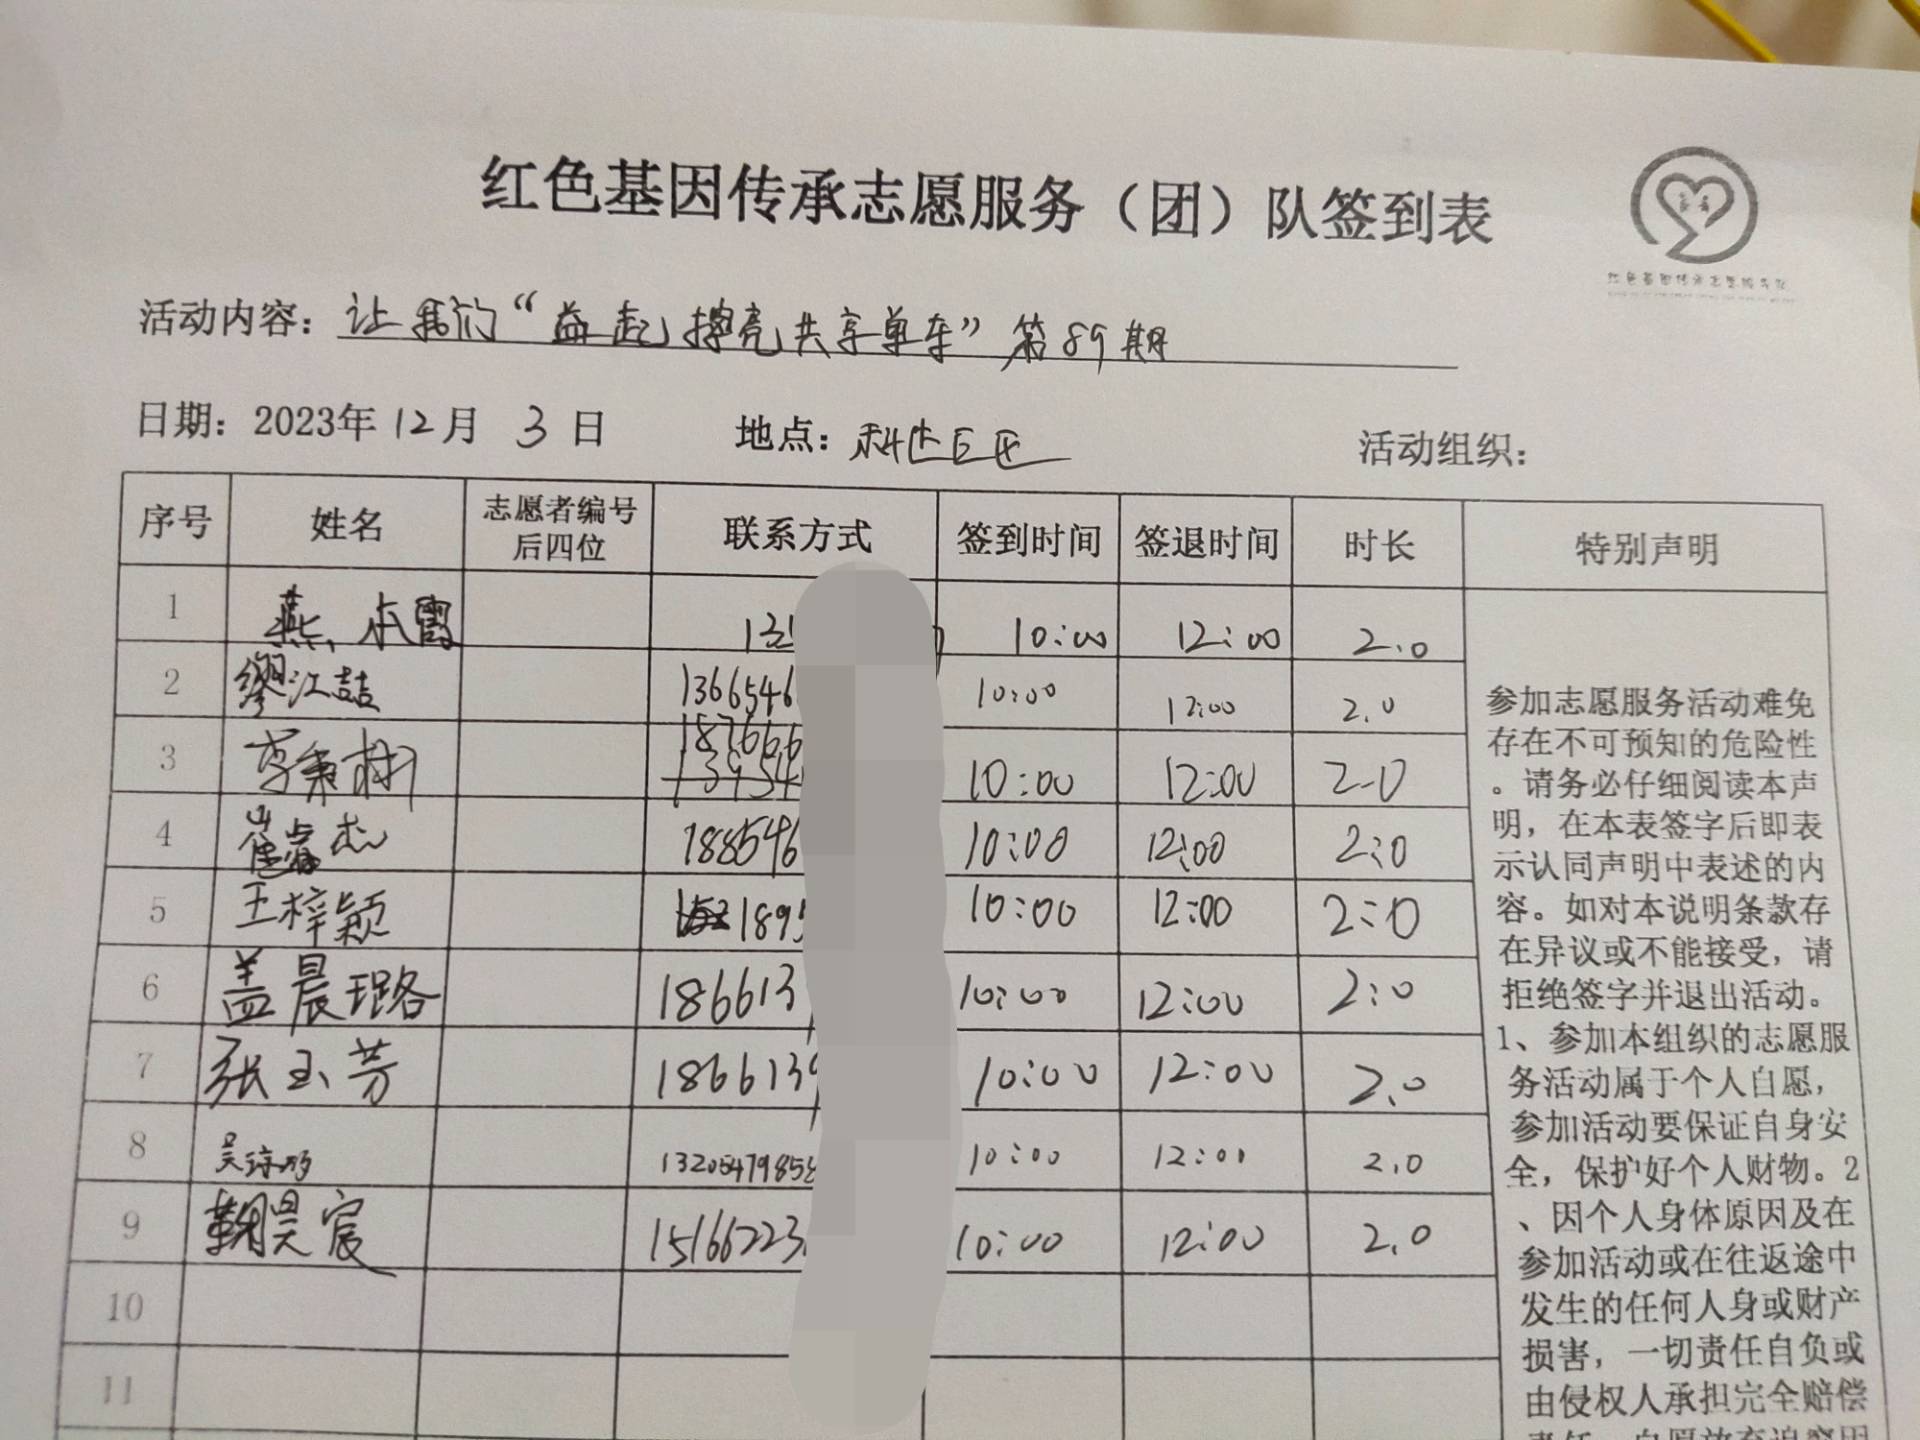 红色基因传承志愿服务（团）队签到表
活动内容：让我们“益起擦亮共享单车”第89期
日期：2023年12月3日 地点： 活动组织：
序号 姓名 志愿者编号后四位 联系方式 签到时间 签退时间 时长 特别声明
1 10:00 12:00 2.0
2 缪江喆 1366546 10:00 12:00 2.0
3 187666 10:00 12:00 2-0
13954
4 崔睿杰 188546 10:00 12:00 2:0
5 王梓颖 1895 10:00 12:00 2:0
6 盖晨璐 186613 10:00 12:00 2:0
7 张玉芳 1866139 10:00 12:00 2.0
8 1320547985 10:00 12:00 2.0
9 鞠昊宸 15166223 10:00 12:00 2.0
10
11
参加志愿服务活动难免
存在不可预知的危险性
。请务必仔细阅读本声
明，在本表签字后即表
示认同声明中表述的内
容。如对本说明条款存
在异议或不能接受，请
拒绝签字并退出活动。
1、参加本组织的志愿服
务活动属于个人自愿，
参加活动要保证自身安
全，保护好个人财物。2
、因个人身体原因及在
参加活动或在往返途中
发生的任何人身或财产
损害，一切责任自负或
由侵权人承担完全赔偿